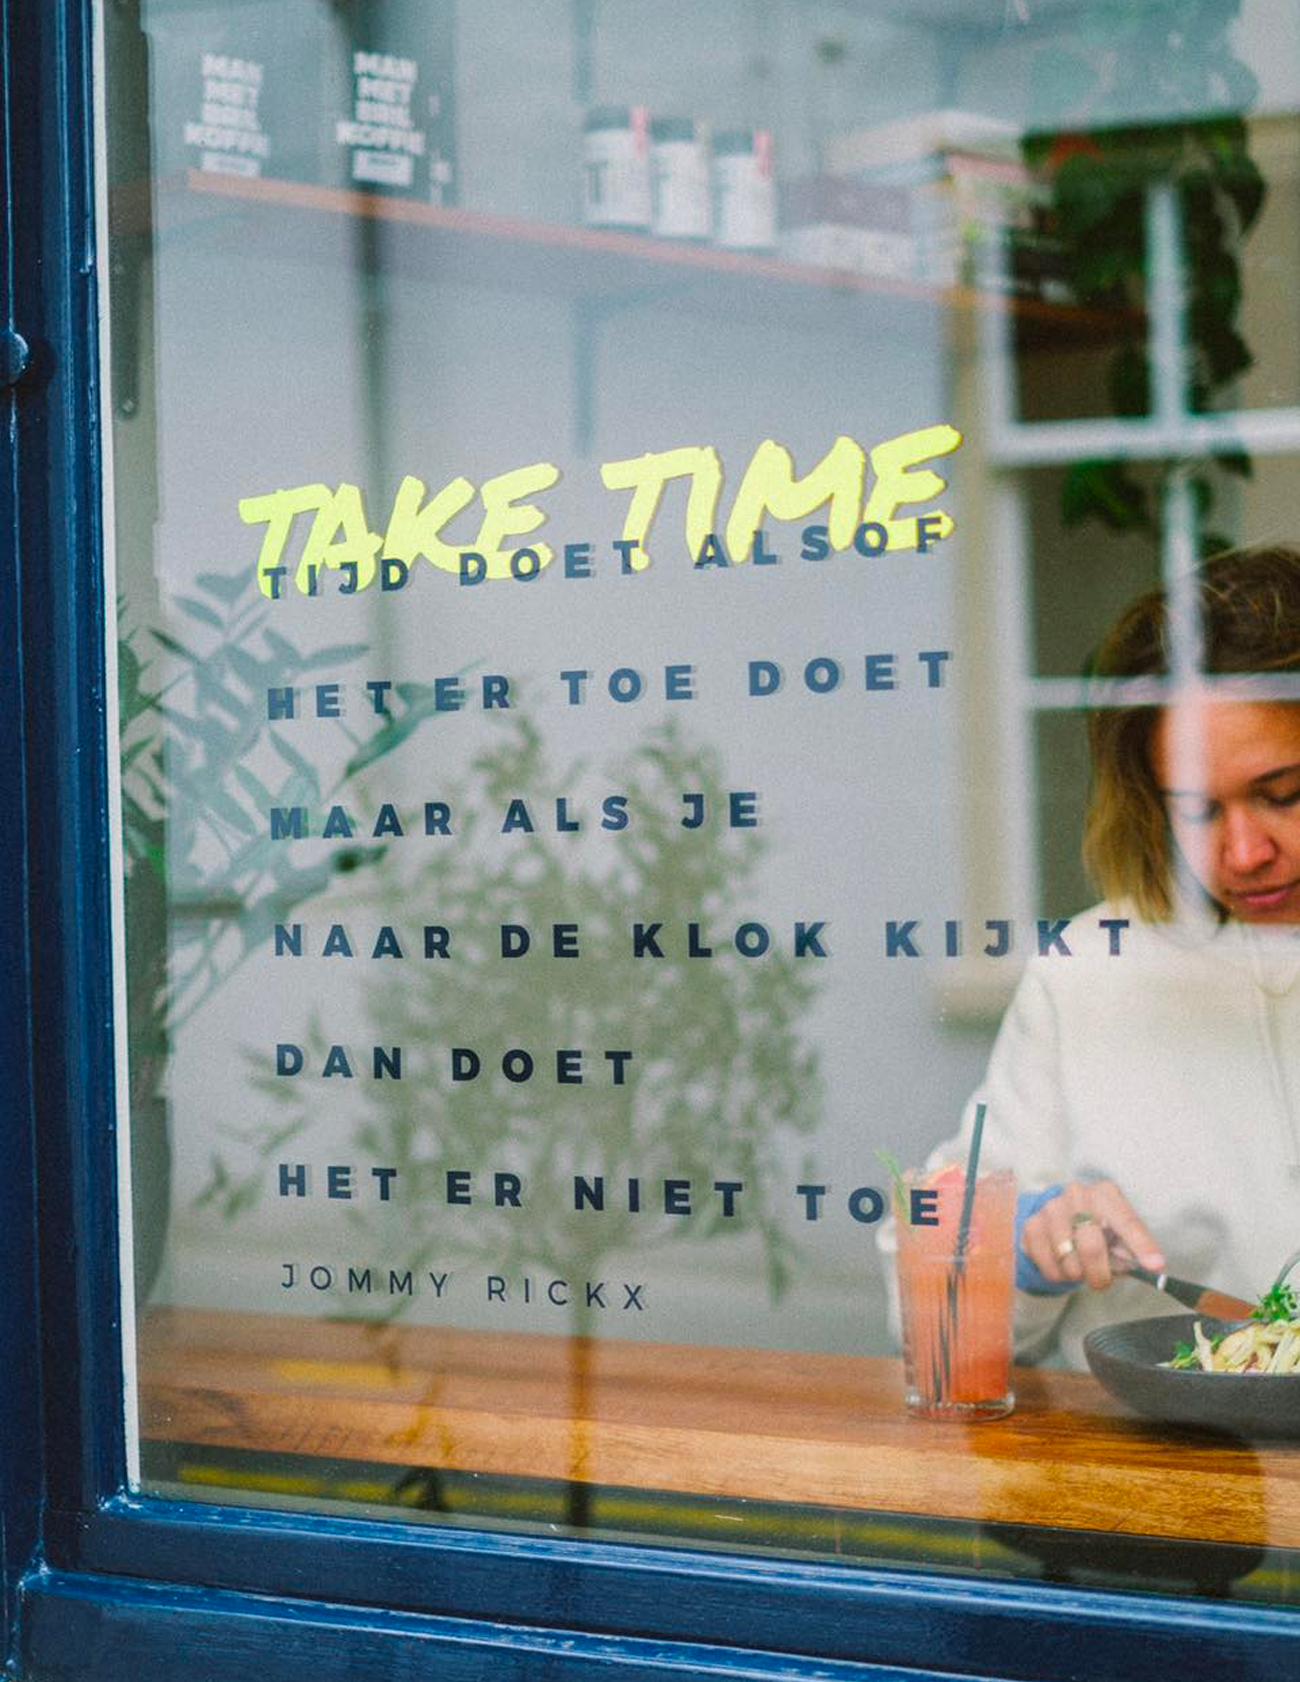 MAN
MET
BRIL
KOFFIE
MAN
MET
BRIL
KOFFIE
TAKE TIME
TIJD DOET ALSOF
HET ER TOE DOET
MAAR ALS JE
NAAR DE KLOK KIJKT
DAN DOET
HET ER NIET TOE
JOMMY RICKX